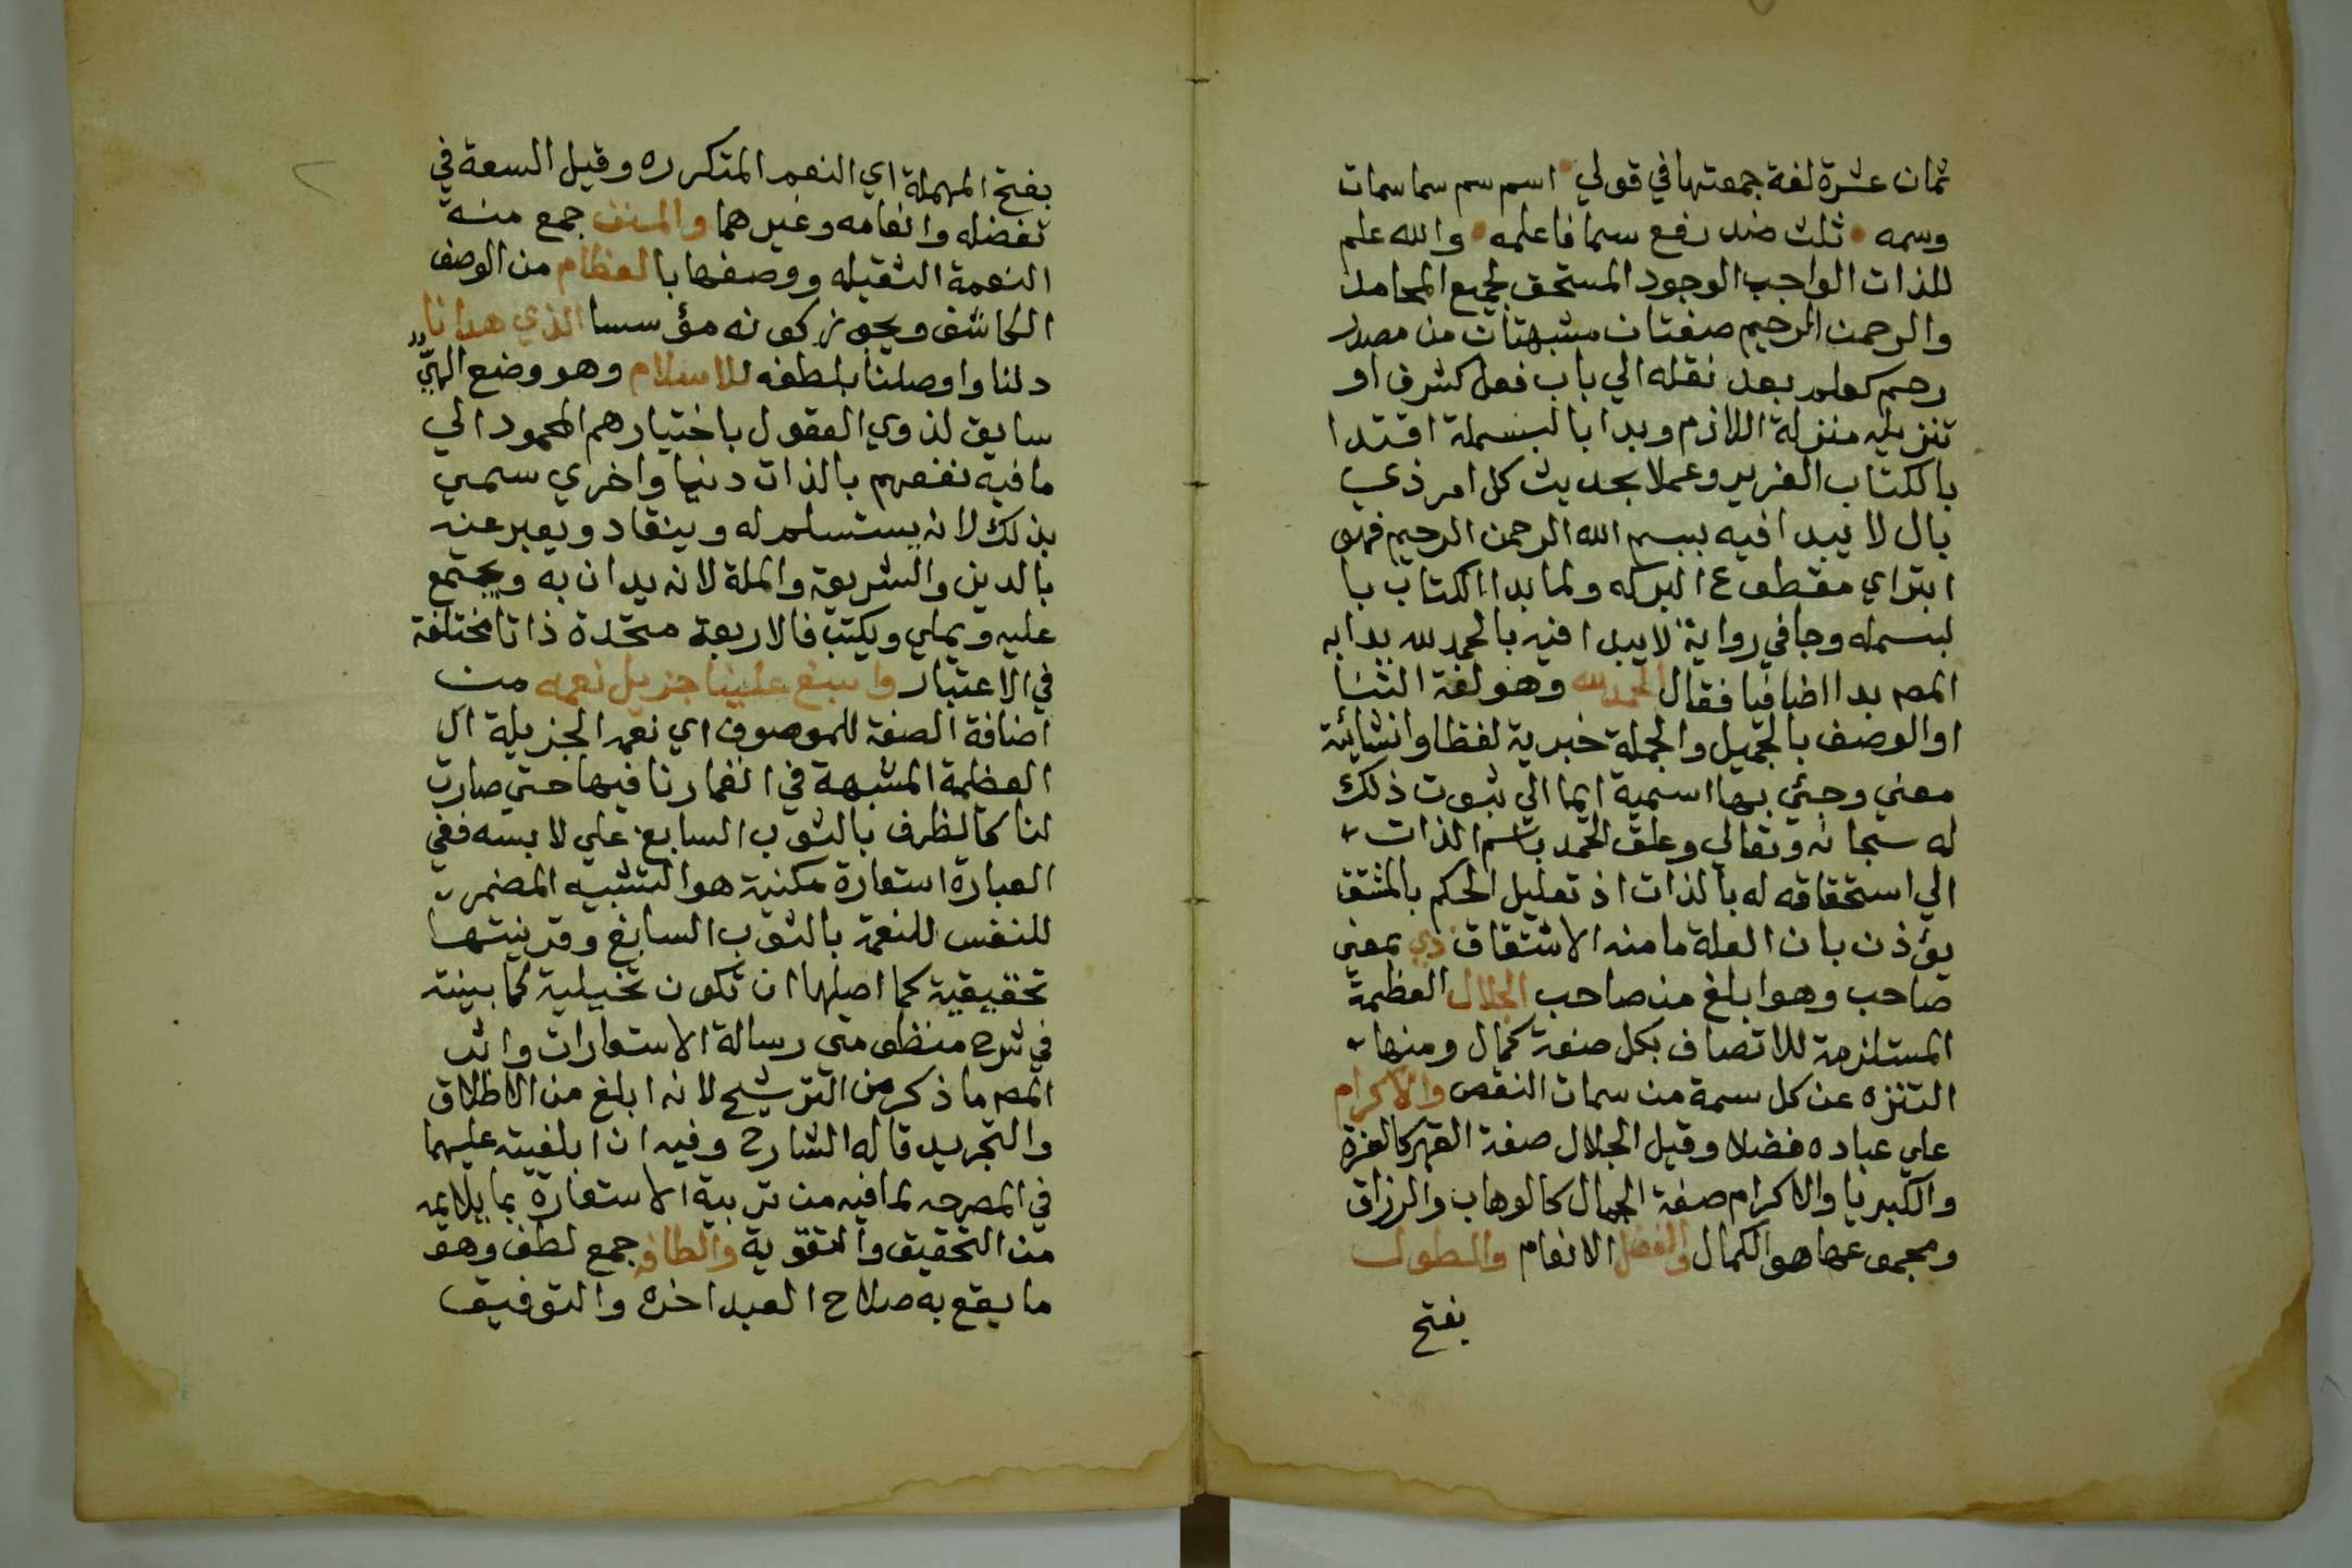 ثمان عشرة لغة جمعتها في قولي • اسم سم سما سمات
وسمه • ثلث ضد رفع سما فاعلمه • والله علم
للذات الواجب الوجود المستحق لجميع المحامد
والرحمن الرحيم صفتان مشبهتان من مصدر
رحم كعلم بعد نقله الي باب فعل كشرف او
تنزيله منزلة اللازم وبدا بالبسملة اقتدا
بالكتاب العزيز وعملا بحديث كل امر ذي
بال لا يبدا فيه ببسم الله الرحمن الرحيم فهو
ابتر اي مقطوع البركه ولما بدا الكتاب با
لبسمله وجا في رواية لا يبدا فيه بالحمد لله بدا به
المصـ بدا اضافيا فقال الحمد لله وهو لغة الثنا
او الوصف بالجميل والجملة خبرية لفظا وانشائية
معني وجئ بها اسمية ايما الي ثبوت ذلك
له سبحانه وتعالي وعلق الحمد باسم الذات
الي استحقاقه له بالذات اذ تعليل الحكم بالمشتق
يؤذن بان العلة ما منه الاشتقاق ذي بمعني
صاحب وهو ابلغ من صاحب الجلال العظمة
المستلزمة للاتصاف بكل صفة كمال ومنها
التنزه عن كل سمة من سمات النقص والاكرام
علي عباده فضلا وقيل الجلال صفة القهر كالعزة
والكبريا والاكرام صفة الجمال كالوهاب والرزاق
ومجموعها هو الكمال والفضل الانعام والطول
بفتح
بفتح المهملة اي النعم المتكرره وقيل السعة في
تفضله وانعامه وغيرهما والمنن جمع منة
النعمة الثقيله ووصفها بالعظام من الوصف
الكاشف ويجوز كونه مؤسسا الذي هدانا
دلنا واوصلنا بلطفه للاسلام وهو وضع الهيّ
سايق لذوي العقول باختيارهم المحمود الي
ما فيه نفعهم بالذات دنيا واخري سمي
بذلك لانه يستسلم له وينقاد ويعبر عنه
بالدين والشريعة والملة لانه يدان به ويجتمع
عليه ويملي ويكتب فالاربعة متحدة ذاتا مختلفة
في الاعتبار واسبغ علينا جزيل نعمه من
اضافة الصفة للموصوف اي نعمه الجزيلة ال
العظيمة المشبهة في انغمارنا فيها حتي صارت
لنا كالظرف بالثوب السابغ علي لابسه ففي
العبارة استعارة مكنية هو التشبيه المضمر
للنفس للنعمة بالثوب السابغ وقرينتها
تحقيقية كما اصلها ان تكون تخييلية كما بينته
في شرح منظومتي رسالة الاستعارات واثر
المصـ ما ذكر من الترشيح لانه ابلغ من الاطلاق
والتجريد قاله الشارح وفيه ان ابلغيته عليهما
في المصرحه لما فيه من تربية الاستعارة بما يلايمه
من التحقيق والتقوية والطافه جمع لطف وهو
ما يقع به صلاح العبد اخره والتوفيق